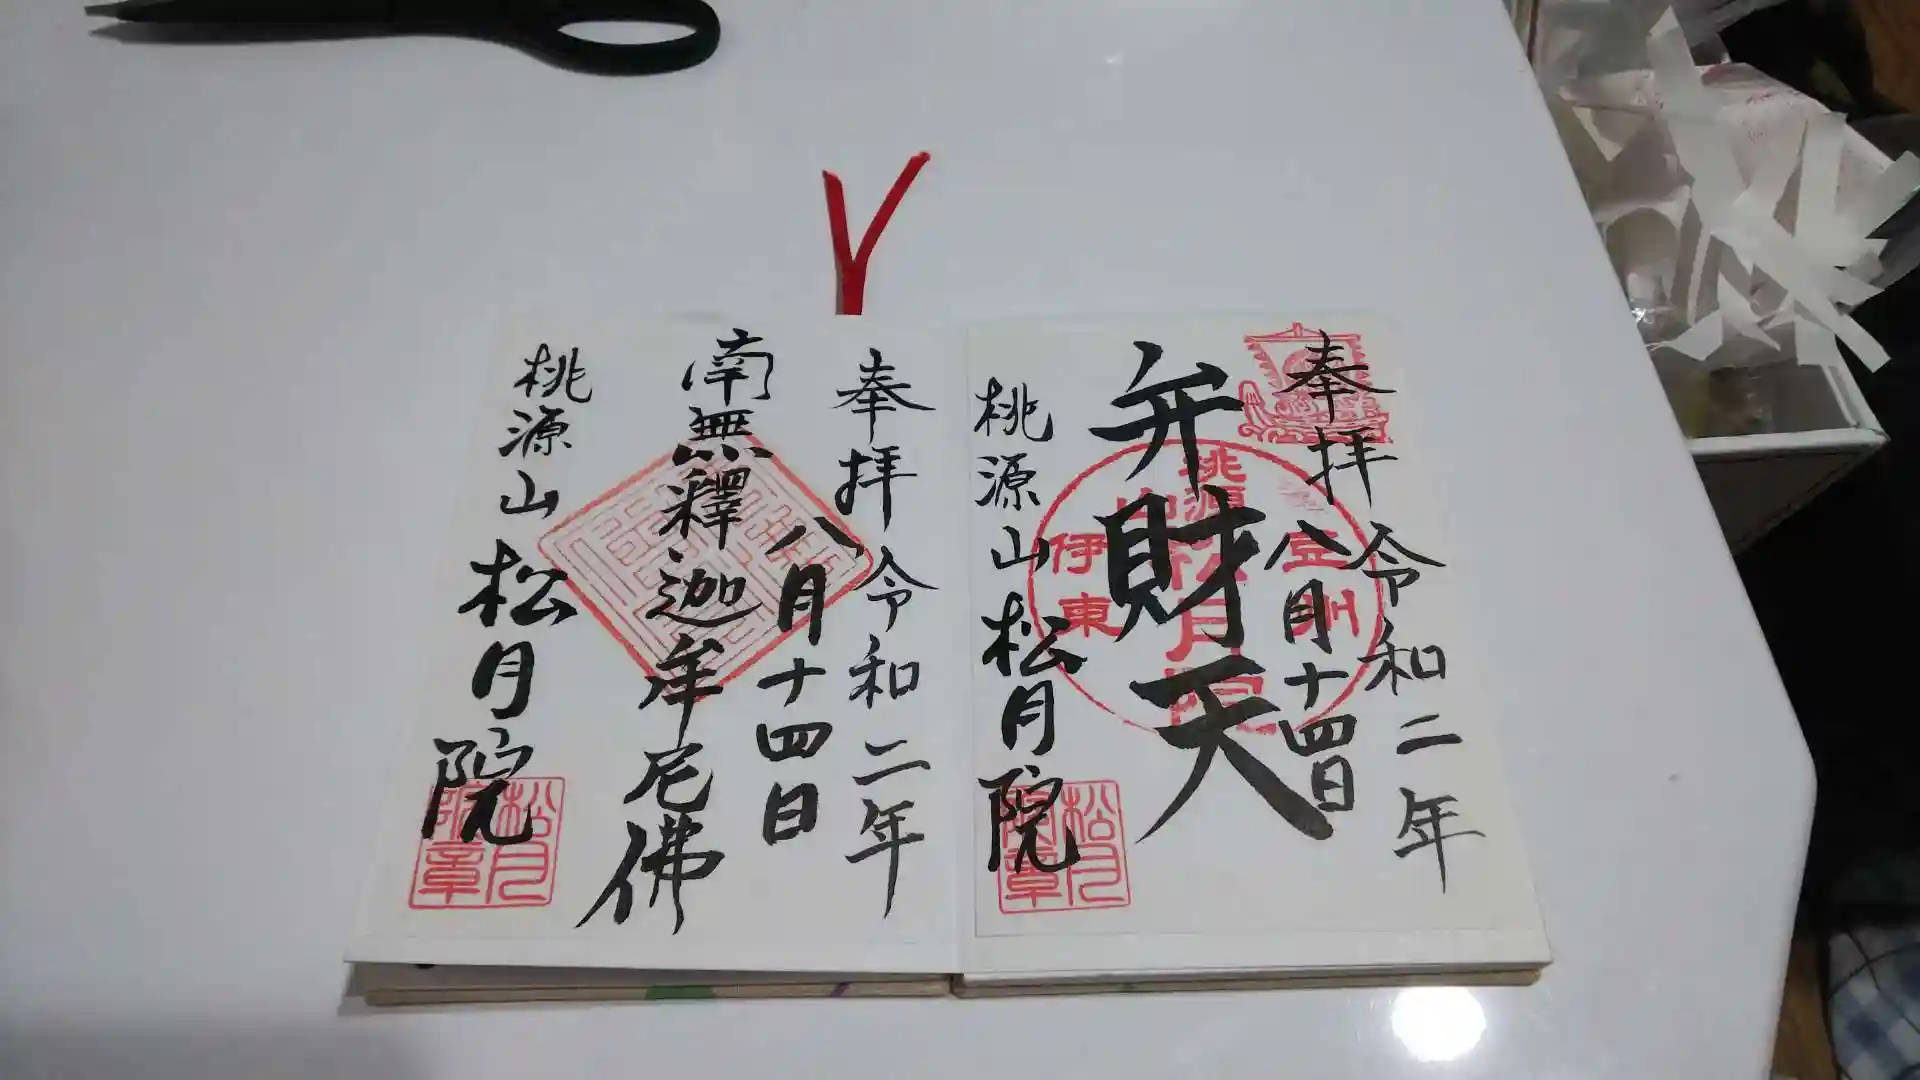 奉拝
令和二年
八月十四日
弁財天
桃源山
松月院
豆州
桃源山
松月院
伊東
松月
院章
奉拝
令和二年
八月十四日
南無釋迦牟尼佛
桃源山
松月院
松月
院章